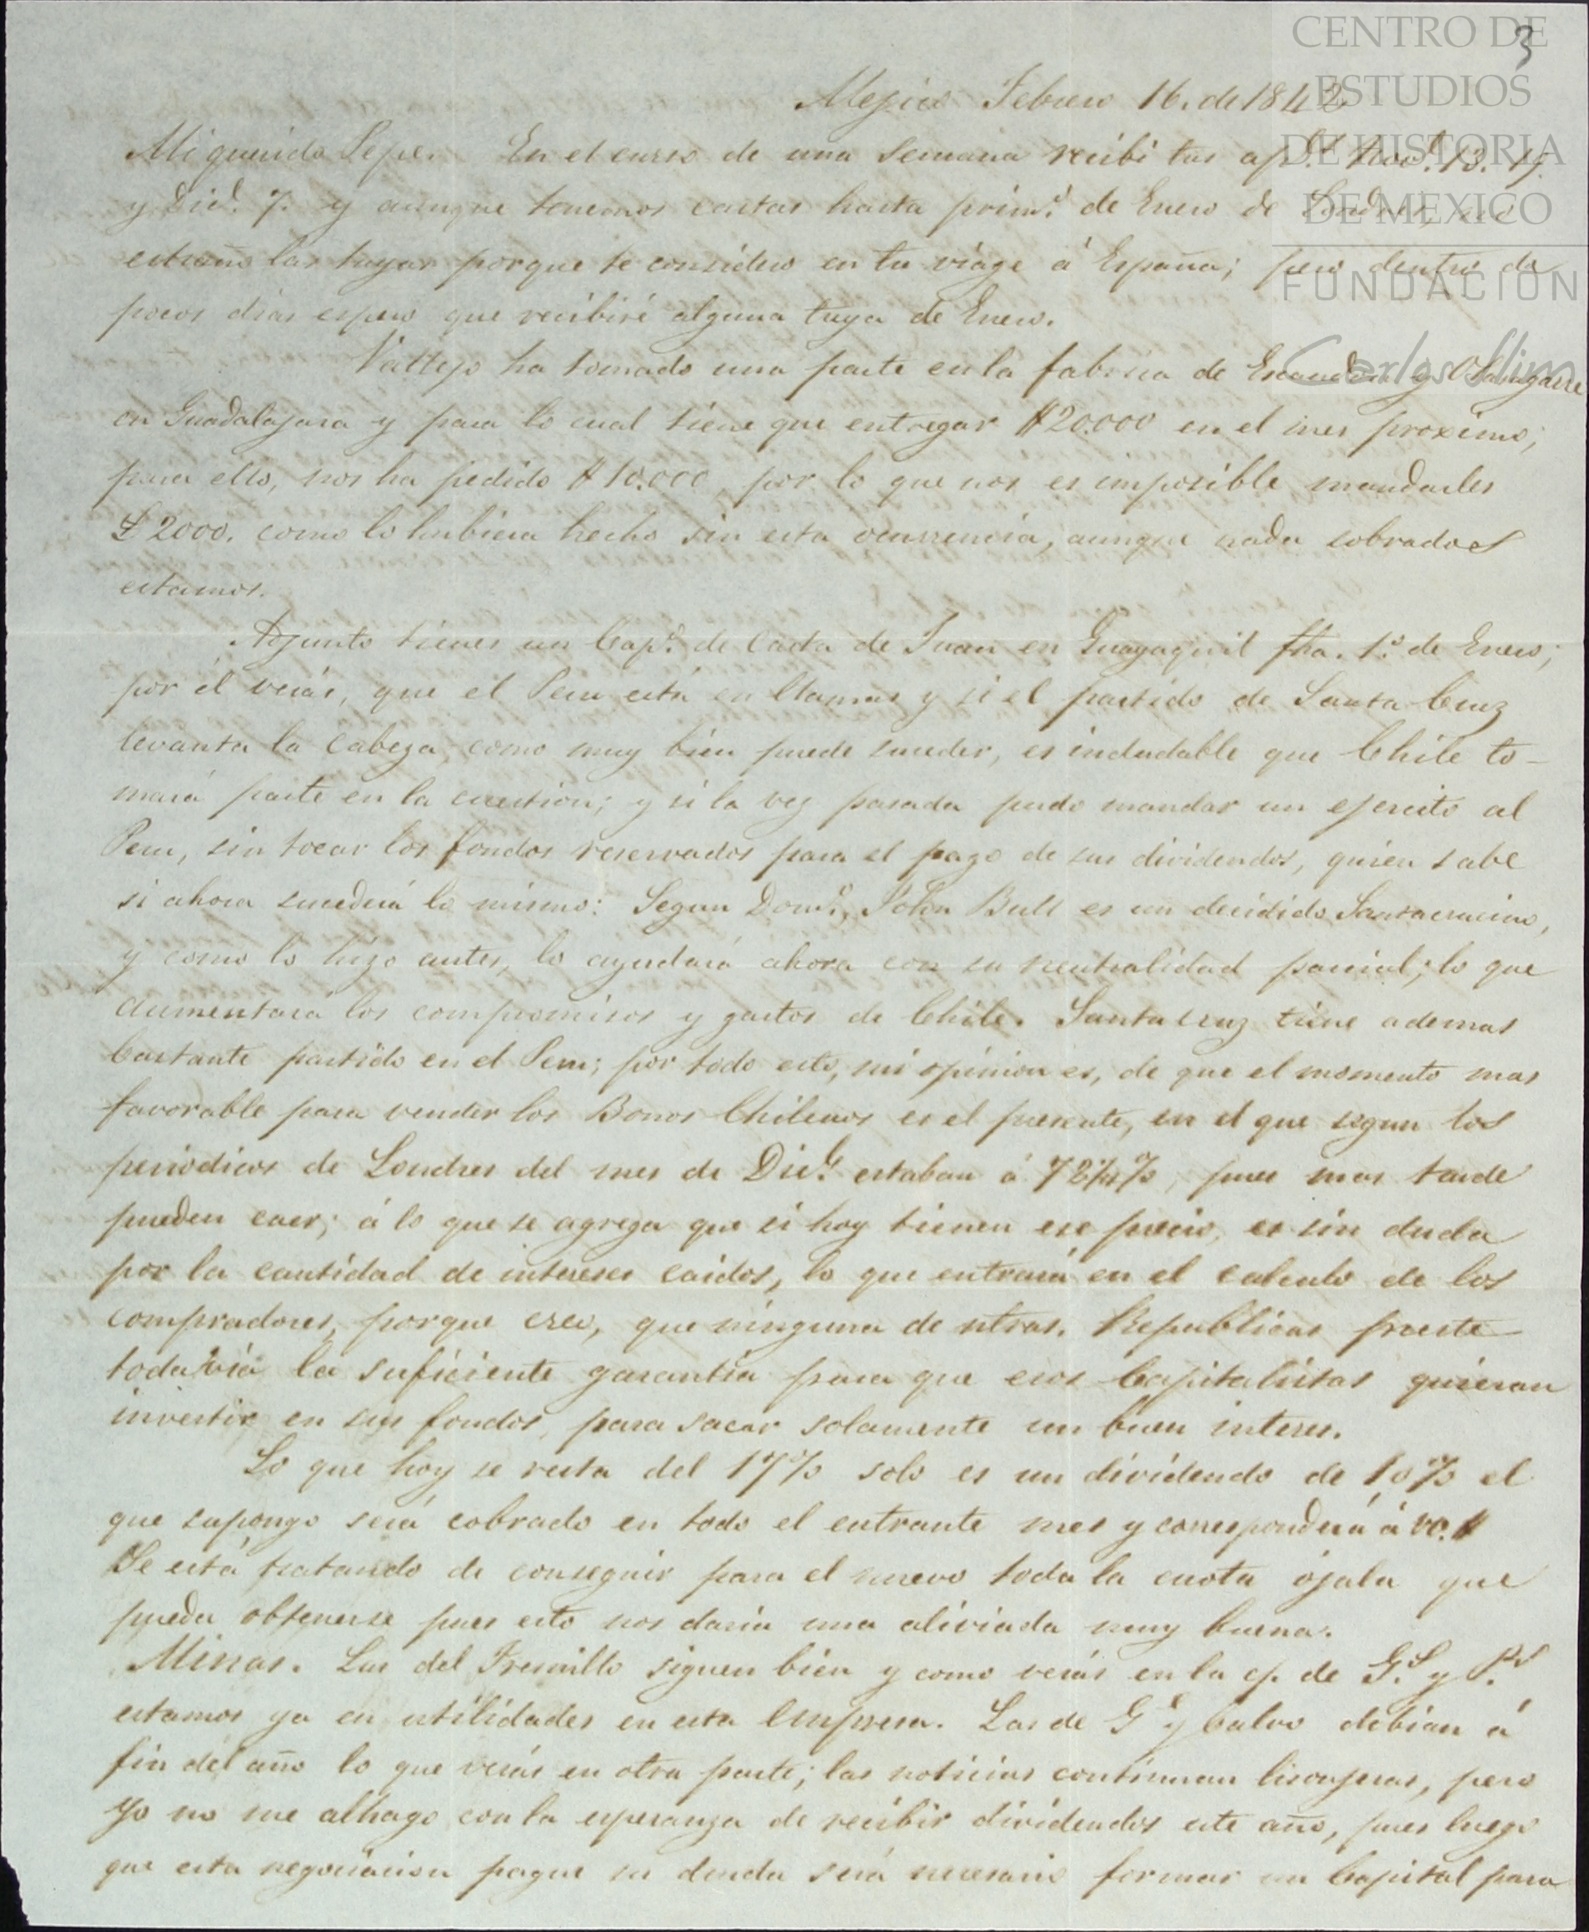 3
CENTRO DE
ESTUDIOS
DE HISTORIA
DE MEXICO
FUNDACIÓN
Carlos Slim
Mejico Febrero 16. de 1842
Mi querido Pepe. En el curso de una semana recibi tus ap.das Nov.e 13. 15.
y Dic.e 7. y aunque tenemos cartas hasta prim.s de Enero de Londres, no
estraño las tuyas porque te considero en tu viage á España; pero dentro de
pocos dias espero que recibiré alguna tuya de Enero.
Vallejo ha tomado una parte en la fabrica de Escandon y Olasagarre
en Guadalajara y para lo cual tiene que entregar $20.000 en el mes proximo;
para ello, nos ha pedido $10.000 por lo que nos es imposible mandarles
£2000. como lo hubiera hecho sin esta ocurrencia, aunque nada sobrados
estamos.
Adjunto tienes un Cap.o de Carta de Juan en Guayaquil fha. 1.o de Enero;
por él verás, que el Peru está en llamas y si el partido de Santa Cruz
levanta la cabeza, como muy bien puede suceder, es indudable que Chile to-
mará parte en la cuestion; y si la vez pasada pudo mandar un ejercito al
Peru, sin tocar los fondos reservados para el pago de sus dividendos, quien sabe
si ahora sucederá lo mismo: Segun Dom.o, John Bull es un decidido Santacrucino,
y como lo hizo antes, lo ayudará ahora con su neutralidad parcial; lo que
aumentará los compromisos y gastos de Chile. Santa Cruz tiene ademas
bastante partido en el Peru; por todo esto, mi opinion es, de que el momento mas
favorable para vender los Bonos Chilenos es el presente, en el que segun los
periodicos de Londres del mes de Dic.e estaban á pues mas tarde
pueden caer; á lo que se agrega que si hoy tienen ese precio, es sin duda
por la cantidad de intereses caidos, lo que entrará en el calculo de los
compradores, porque creo, que ninguna de ntras. Republicas preste
todavia la suficiente garantia para que esos Capitalistas quieran
invertir en sus fondos, para sacar solamente un buen interes.
Lo que hoy se resta del 17% solo es un dividendo de 10% el
que supongo será cobrado en todo el entrante mes y corresponderá á
Se está tratando de conseguir para el nuevo toda la cuota ójala que
pueda obtenerse pues esto nos daria una aliviada muy buena.
Minas. Las del Fresnillo siguen bien y como verás en la cp. de G.s y P.s
estamos ya en utilidades en esta Empresa. Las de G.e y Calvo debian á
fin del año lo que verás en otra parte; las noticias continuan lisonjeras, pero
yo no me alhago con la esperanza de recibir dividendos este año, pues luego
que esta negociacion pague su deuda será necesario formar un Capital para